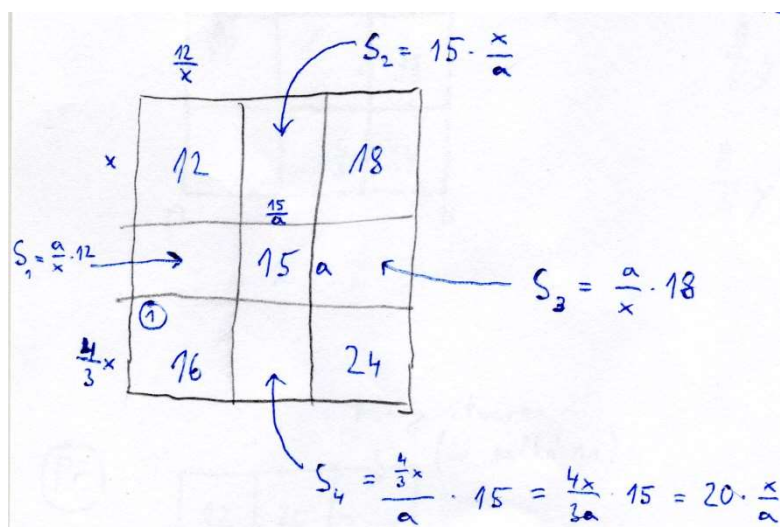 12/x
S₂ = 15 · x/a
x 12 18
S₁ = a/x · 12
15/a
15 a
S₃ = a/x · 18
①
4/3 x 16 24
S₄ = (4/3 x)/a · 15 = 4x/3a · 15 = 20 · x/a